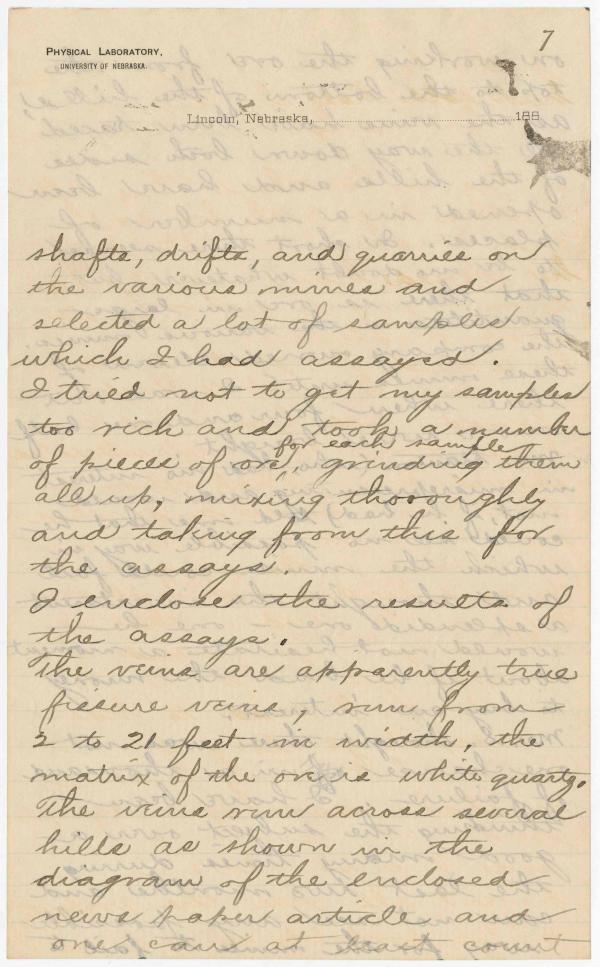 7
PHYSICAL LABORATORY,
UNIVERSITY OF NEBRASKA.
Lincoln, Nebraska, 188
shafts, drifts, and quarries on
the various mines and
selected a lot of samples
which I had assayed.
I tried not to get my samples
too rich and took a number
for each sample
of pieces of ore, grinding them
all up, mixing thoroughly
and taking from this for
the assays.
I enclose the results of
the assays.
The veins are apparently true
fissure veins, run from
2 to 21 feet in width, the
matrix of the ore is white quartz.
The veins run across several
hills as shown in the
diagram of the enclosed
news paper article and
one can at least count